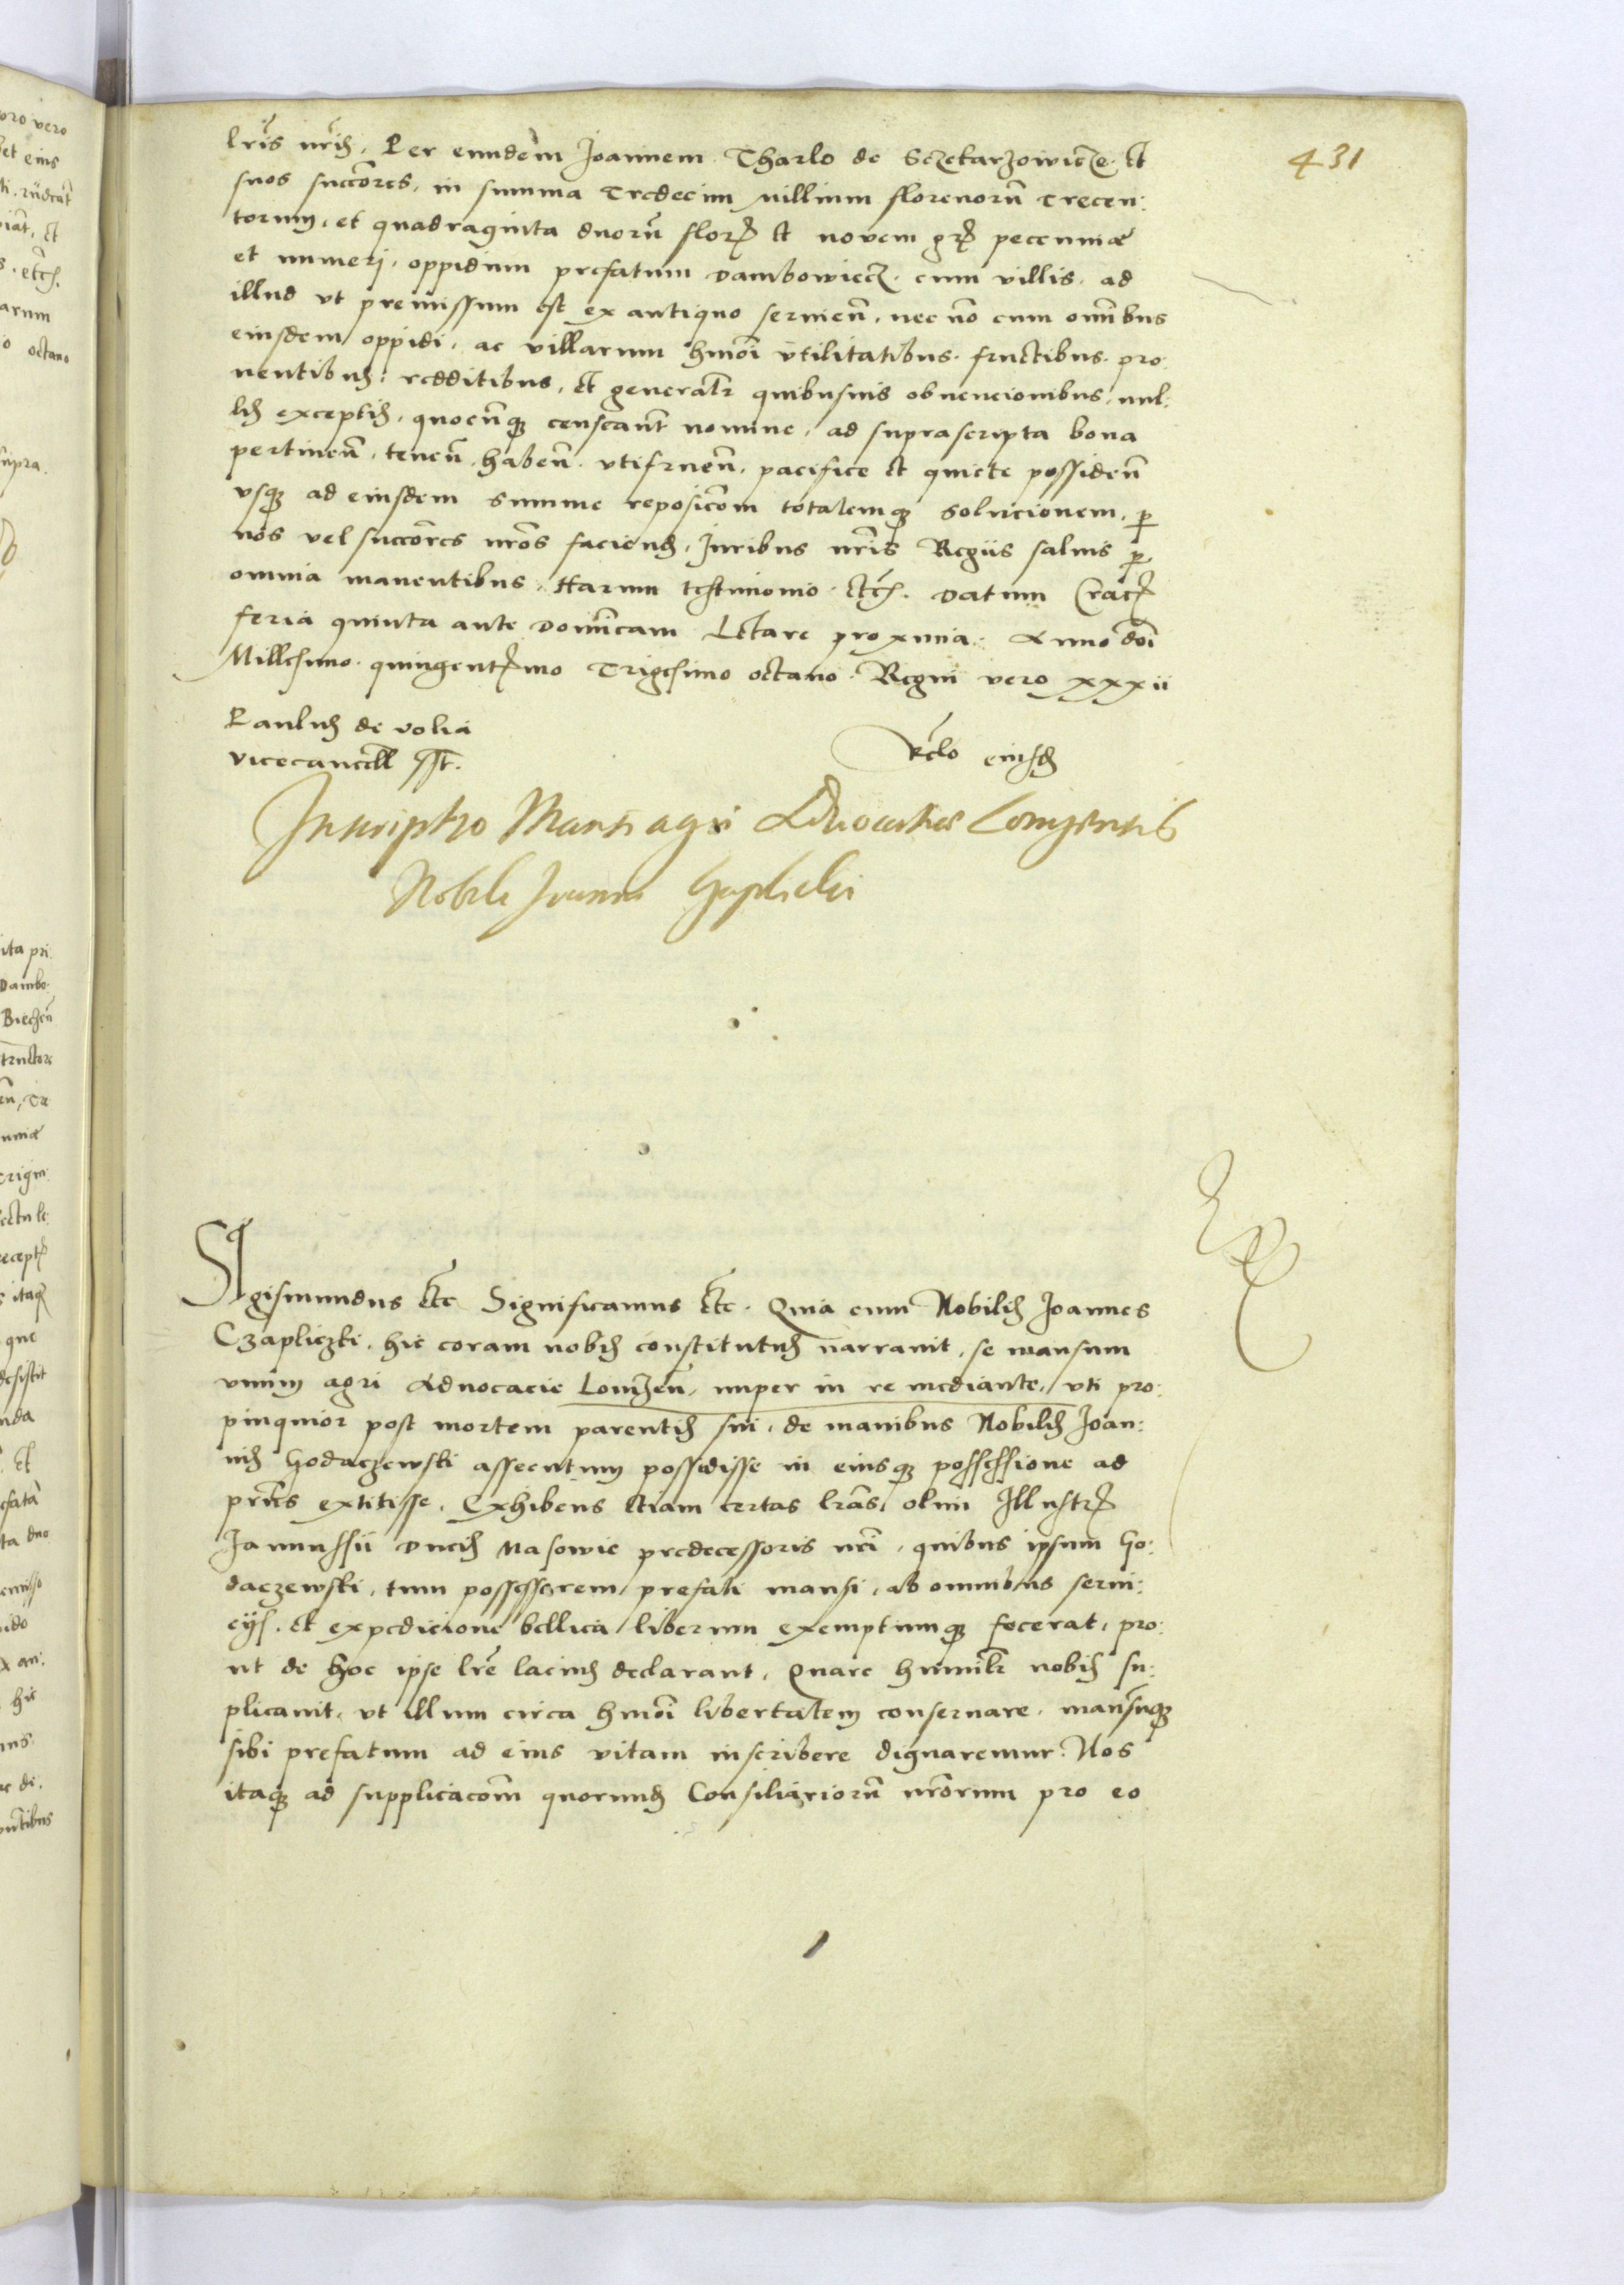 431
lrīs nrīs. Per eundem Joannem Tharlo de Sczekarzowicze. et
suos succōres, in summa Tredecim millium florenorū trecen:
torum, et quadraginta duorū flor. et novem gr. pecuniæ
et numeri, oppidum prefatum Dambowiecz, cum villis, ad
illud vt premissum est ex antiquo servien̄, nec nō cum omībus
eiusdem oppidi, ac villarum hmōi vtilitatibus, fructibus, pro:
uentibus: redditibus, et generalr quibusuis obuencionibus, nul:
lis exceptis, quocūq; censeant̄ nomine, ad suprascripta bona
pertinen̄, tenen̄, haben̄, vtifruen̄, pacifice et quiete possiden̄
vsq; ad eiusdem summe reposicōm totalemq; solucionem, p
nos vel succōres nrōs faciend, Juribus nrīs Regiis saluis p
omnia manentibus, Harum testimonio etc. Datum Crac.
feria quinta ante Domīcam Letare proxima. Anno dōi
Millesimo quingentesimo Trigesimo octauo. Regni vero xxxii
Paulus de volia
vicecancell sst.
Rclo eiusd
Inscriptio Mansi agri Advocatiae Lomzensis
Nobili Joanni Czaplicki
Sigismundus etc Significamus etc. Quia cum Nobilis Joannes
Czapliczki, hic coram nobis constitutus narrauit, se mansum
vnum agri Aduocacie Lomzen̄, nuper in re mediante, vti pro:
pinquior post mortem parentis sui, de manibus Nobilis Joan:
nis Godaczewski assecutum possedisse in eiusq; possessione ad
prn̄s extitisse. Exhibens etiam certas lrās, olim Illustr.
Janussii Ducis Masowie predecessoris nrī, quibus ipsum Go:
daczewski, tum possessorem prefati mansi, ab omnibus serui:
cijs, et expedicione bellica liberum exemptumq; fecerat, pro:
ut de hoc ipse lrē lacius declarant, Quare humilr nobis su:
plicauit, vt illum circa hmōi libertatem conseruare, mansūq;
sibi prefatum ad eius vitam inscribere dignaremur. Nos
itaq; ad supplicacōm quorund Consiliariorū nrōrum pro eo